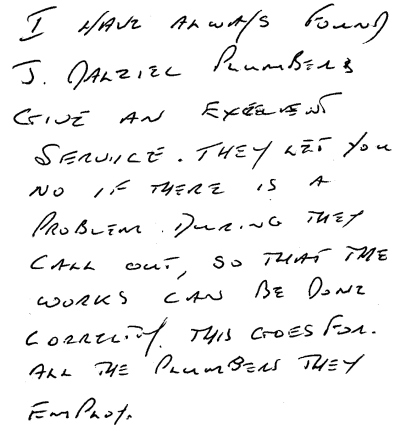 I HAVE ALWAYS FOUND
J. DALZIEL PLUMBERS
GIVE AN EXCELLENT
SERVICE. THEY LET YOU
NO IF THERE IS A
PROBLEM DURING THEY
CALL OUT, SO THAT THE
WORKS CAN BE DONE
CORRECTLY. THIS GOES FOR.
ALL THE PLUMBERS THEY
EMPLOY.